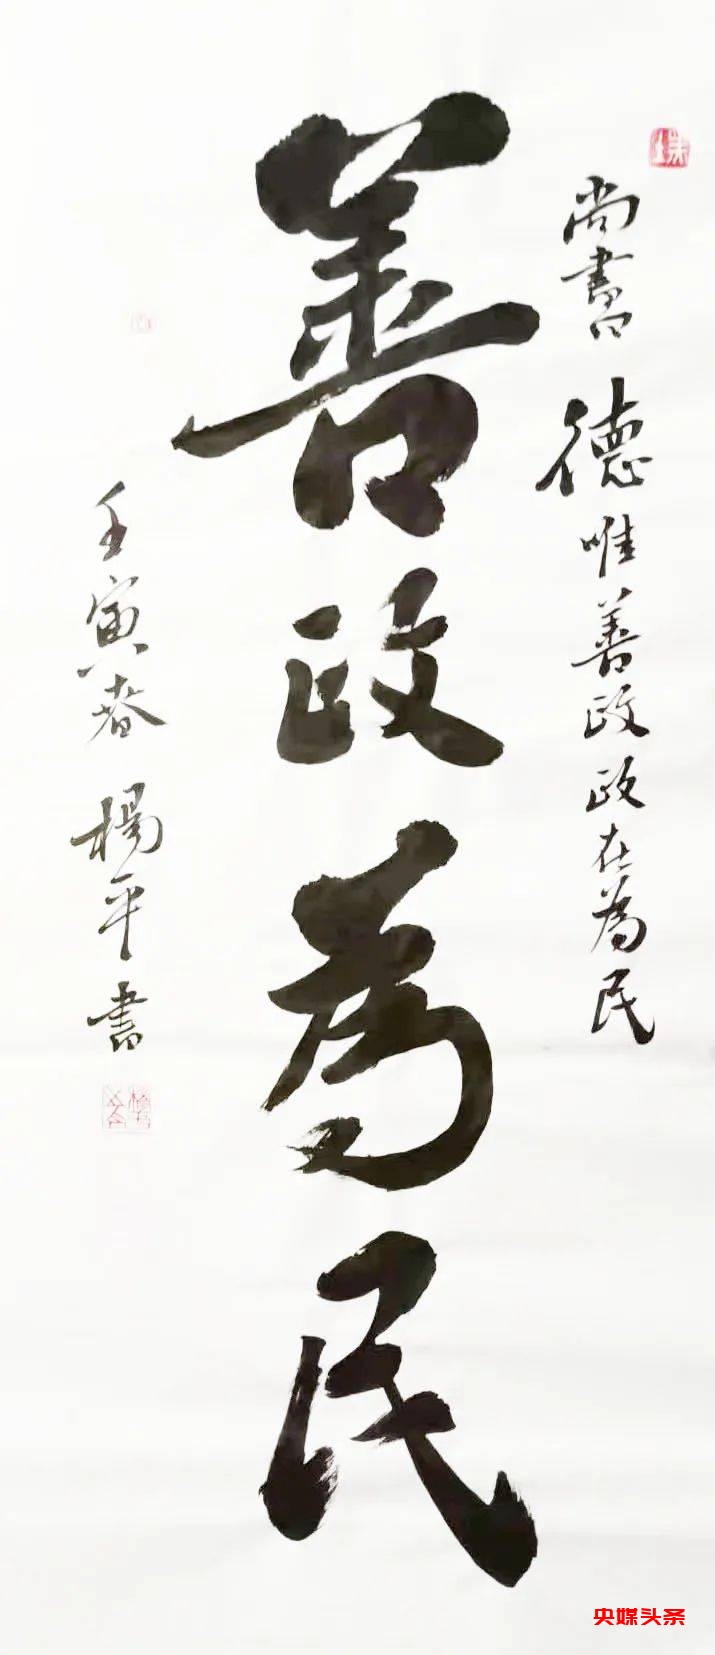 尚書曰 德唯善政政在為民
善政為民
壬寅春 楊平書
央媒头条